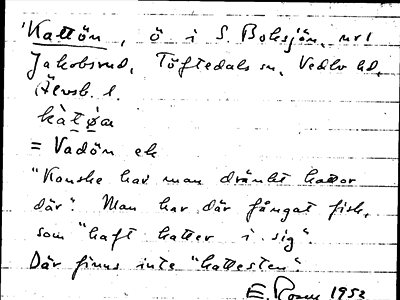 'Kattön, ö i S. Boksjön, nr 1
Jakobsrud, Töftedals sn, Vedbo hd,
Älvsb. l.
kàtø̣a
= Vadön ek
"Kanske har man dränkt kattor
där". Man har där fångat fisk,
som "haft katter i sig".
Där finns inte "kattesten".
E. Rosen 1953